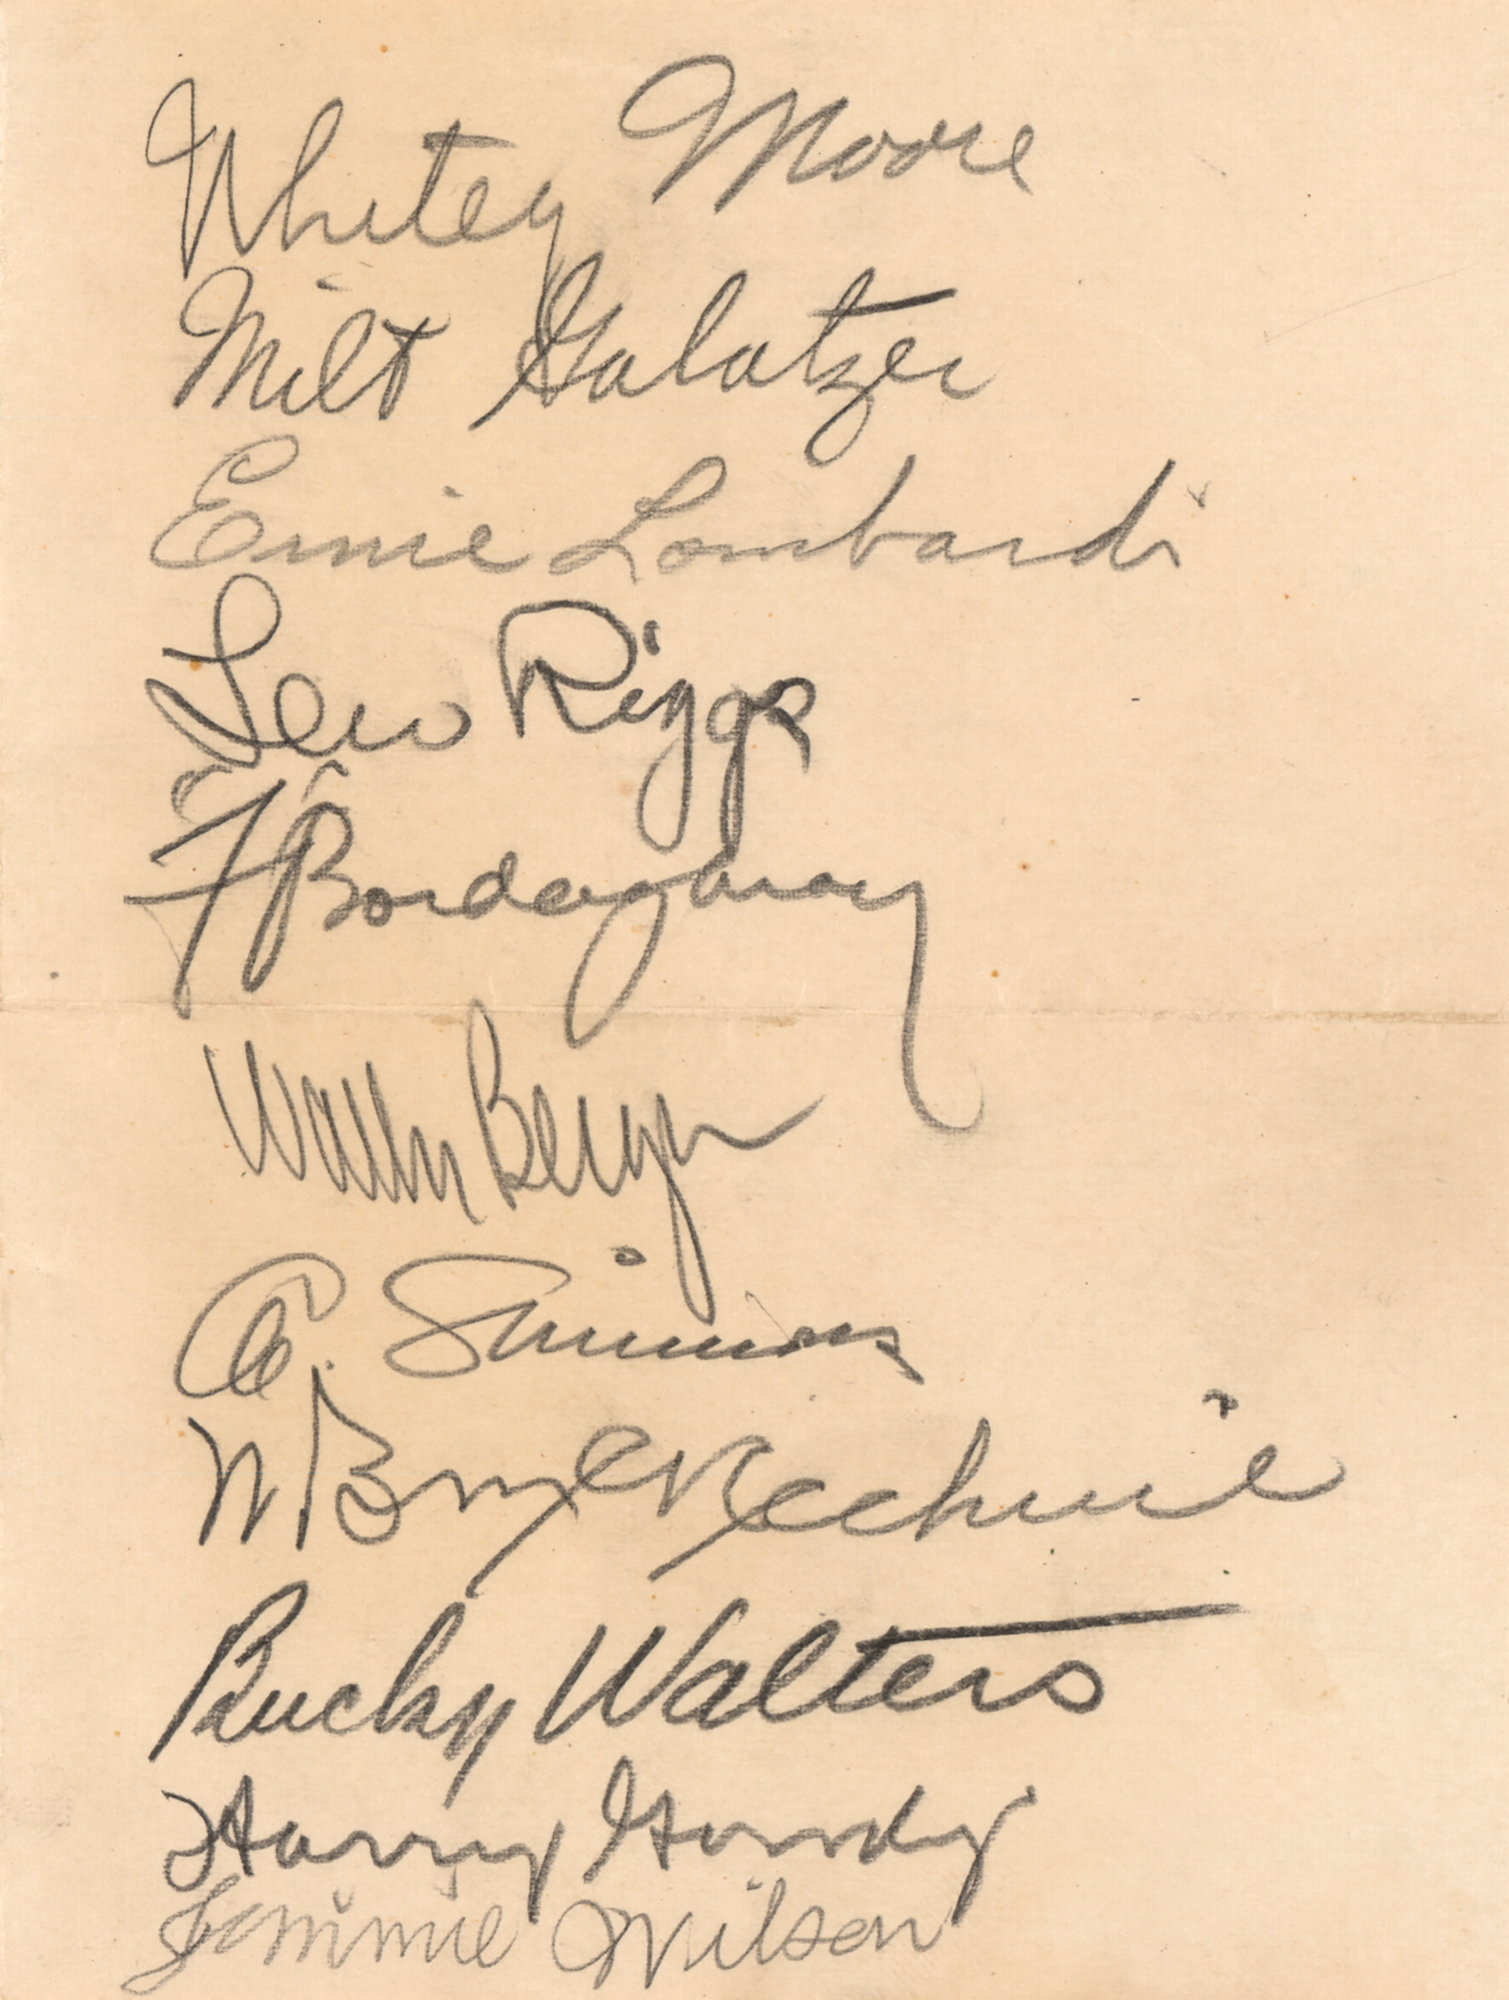 Whitey Moore
Milt Galatzer
Ernie Lombardi
Lew Riggs
F Bordagaray
Wally Berger
Al. Simmons
Wm B McKechnie
Bucky Walters
Harry Gowdy
Jimmie Wilson